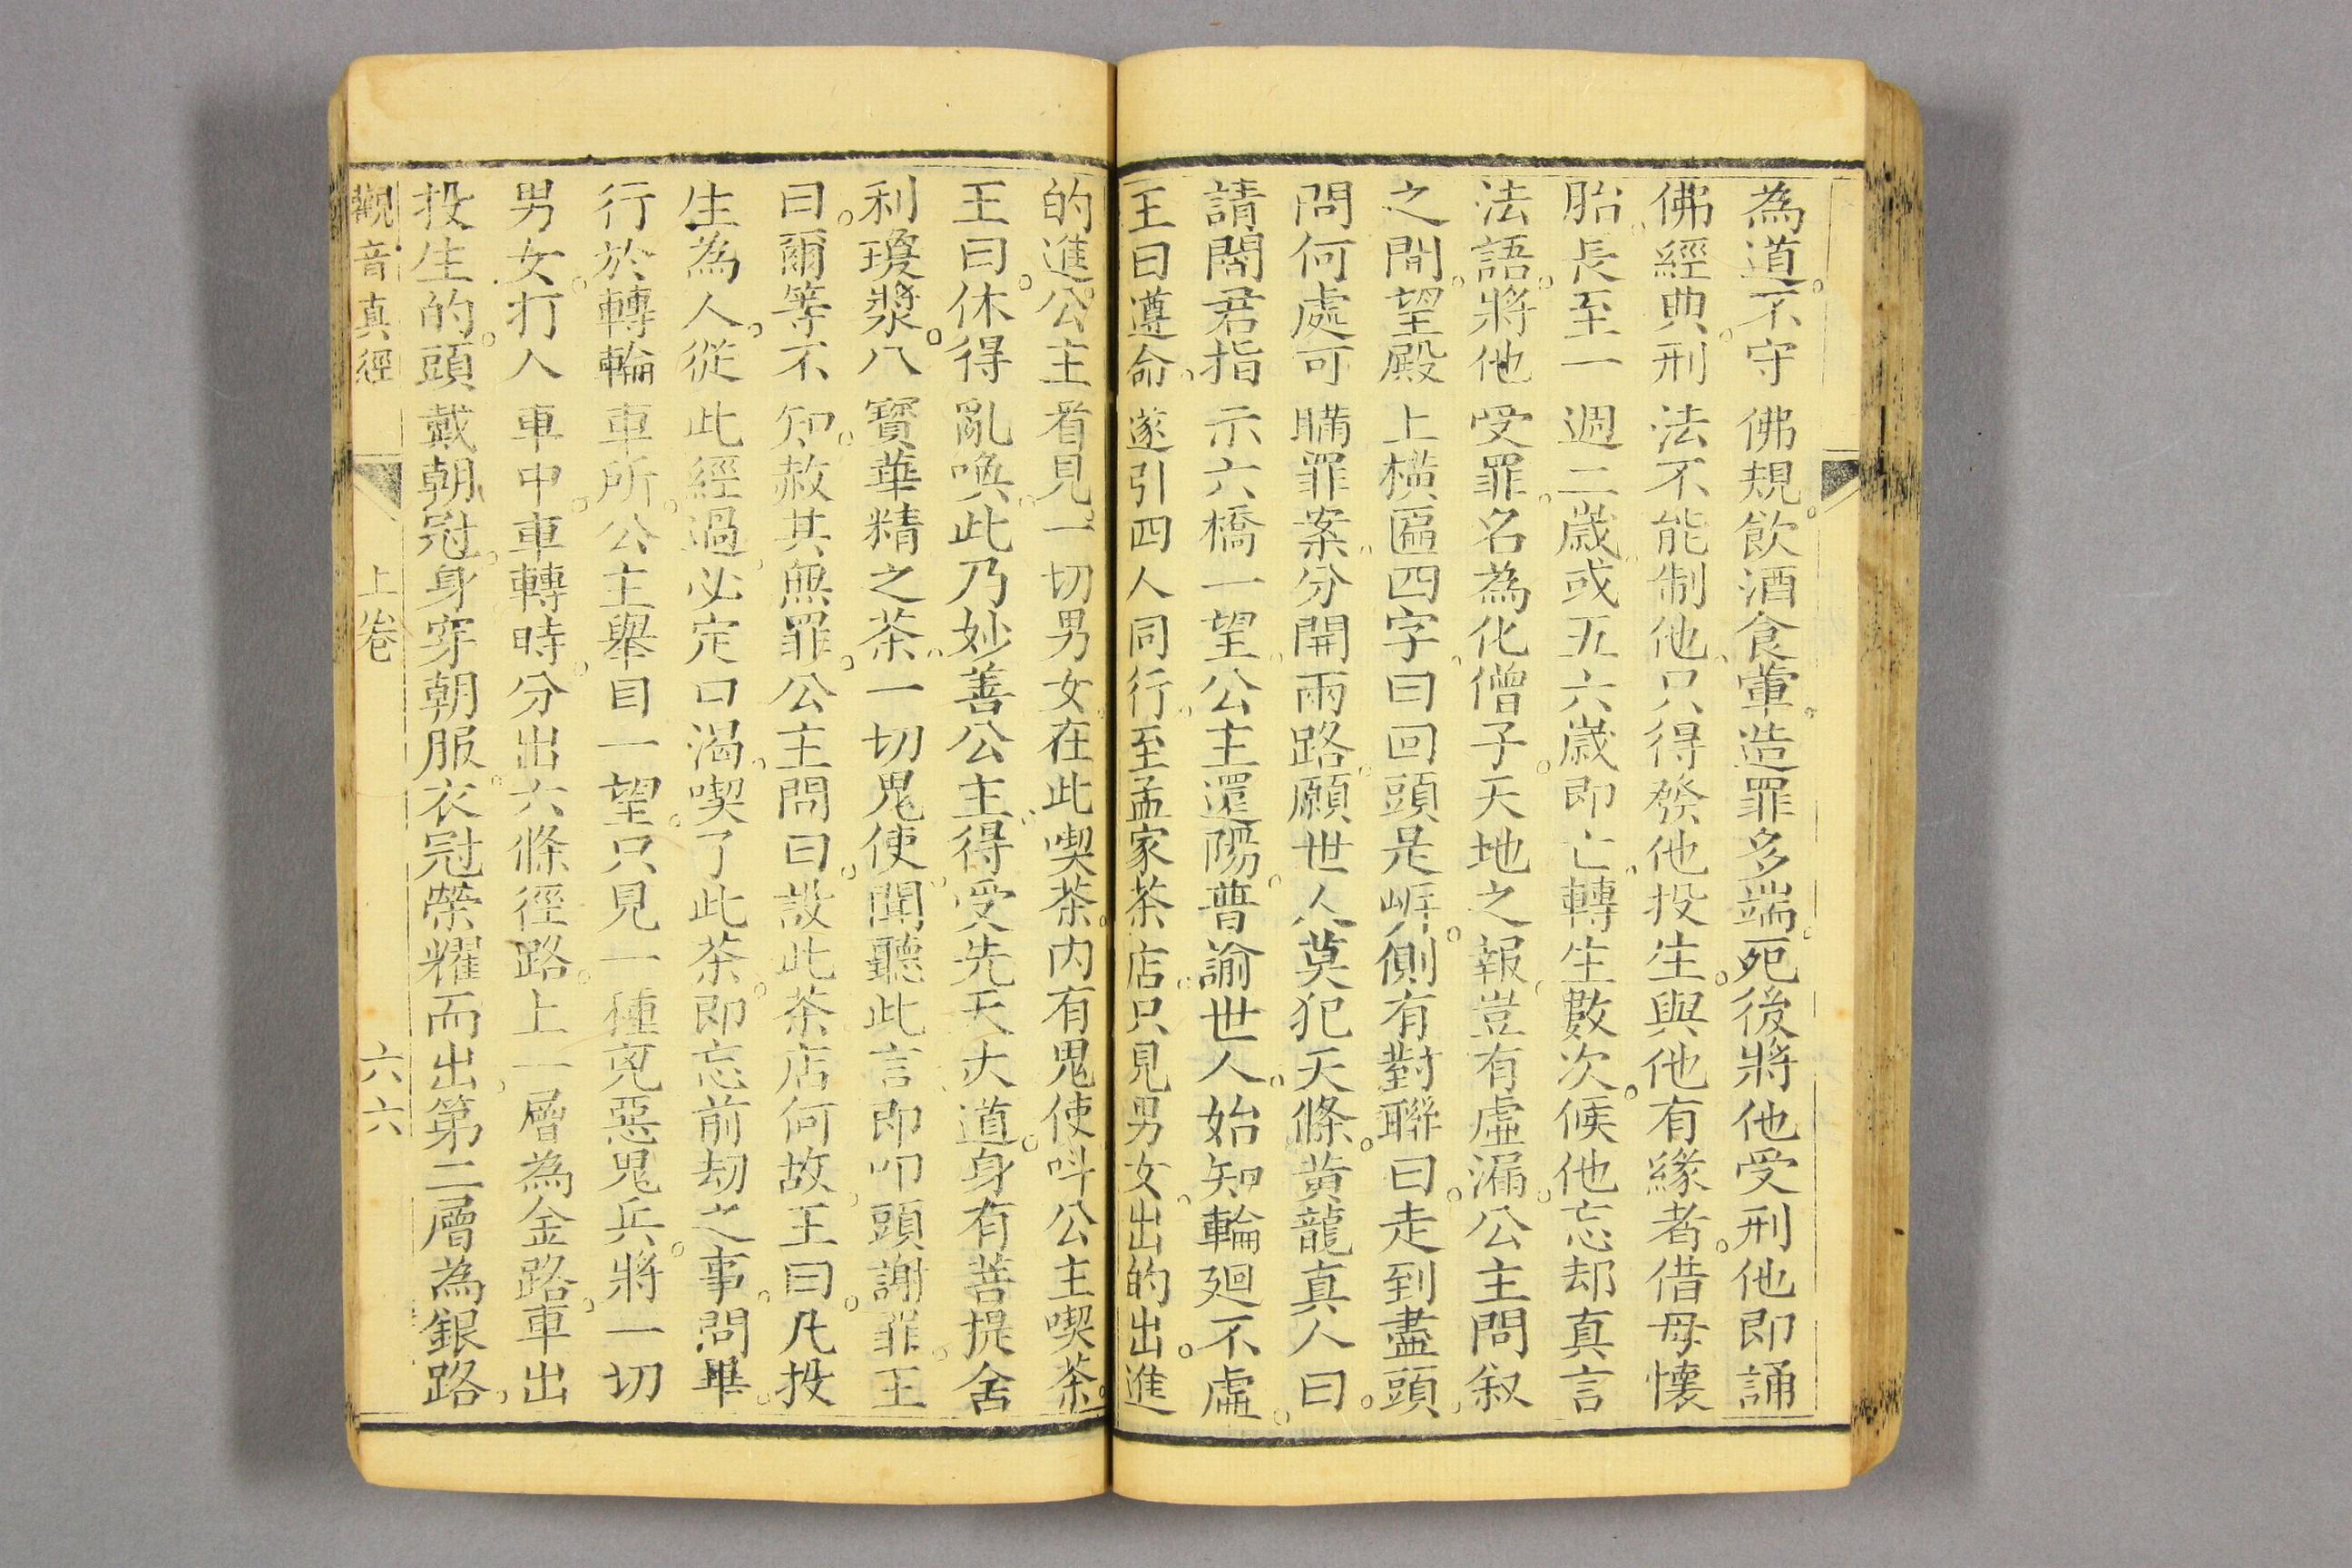 為道。不守佛規。飲酒食葷。造罪多端。死後將他受刑他即誦
佛經典。刑法不能制他。只得發他投生。與他有緣者。借母懷
胎。長至一週二歲。或五六歲。即亡。轉生數次。候他忘却真言
法語。將他受罪。名為化僧子。天地之報。豈有虛漏。公主問叙
之間。望殿上橫匾四字。曰回頭是岸。側有對聯曰。走到盡頭。
問何處可瞞罪案。分開兩路。願世人莫犯天條。黃龍真人曰。
請閻君指示六橋一望。公主還陽。普諭世人。始知輪廻不虛。
王曰遵命。遂引四人同行。至孟家茶店。只見男女。出的出。進
的進。公主看見。一切男女。在此喫茶。內有鬼使呌公主喫茶。
王曰。休得亂喚。此乃妙善公主。得受先天大道。身有菩提舍
利瓊漿。八寶華精之茶。一切鬼使。聞聽此言。即叩頭謝罪。王
曰。爾等不知。赦其無罪。公主問曰。設此茶店何故。王曰。凡投
生為人。從此經過。必定口渴。喫了此茶。即忘前刼之事。問畢。
行於轉輪車所。公主舉目一望。只見一種兇惡鬼兵。將一切
男女。打入車中。車轉時。分出六條徑路。上一層為金路。車出
投生的。頭戴朝冠。身穿朝服。衣冠榮耀而出。第二層為銀路。
觀音真經 上卷 六六